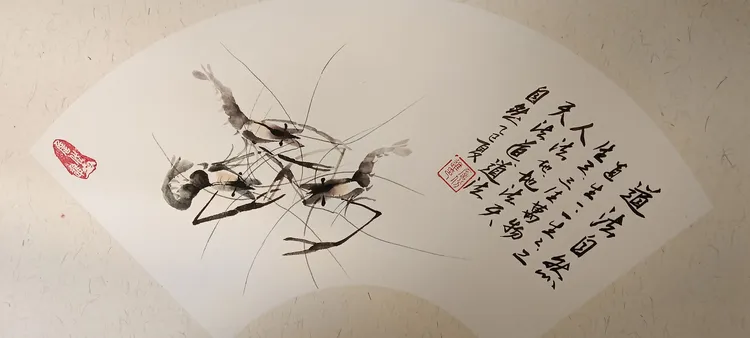 道法自然
道生一一生二二
生三三生萬物
人法地地法天
天法道道法
自然乙巳夏